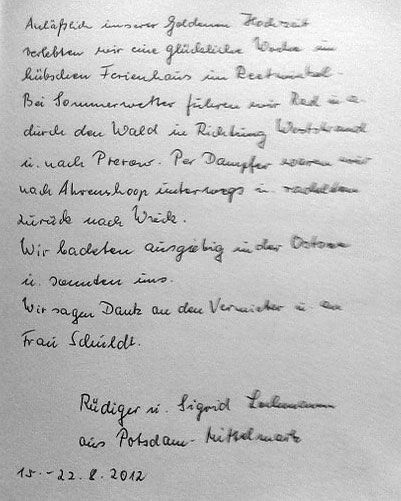 Anläßlich unserer Goldenen Hochzeit
verlebten wir eine glückliche Woche im
hübschen Ferienhaus im Reetwinkel.
Bei Sommerwetter fuhren wir Rad u.a.
durch den Wald in Richtung Weststrand
u. nach Prerow. Per Dampfer waren wir
nach Ahrenshoop unterwegs u. radelten
zurück nach Wieck.
Wir badeten ausgiebig in der Ostsee
u. sonnten uns.
Wir sagen Dank an den Vermieter u. an
Frau Schuldt.
Rüdiger u. Sigrid
aus Potsdam-Mittelmark
15.-22.8.2012